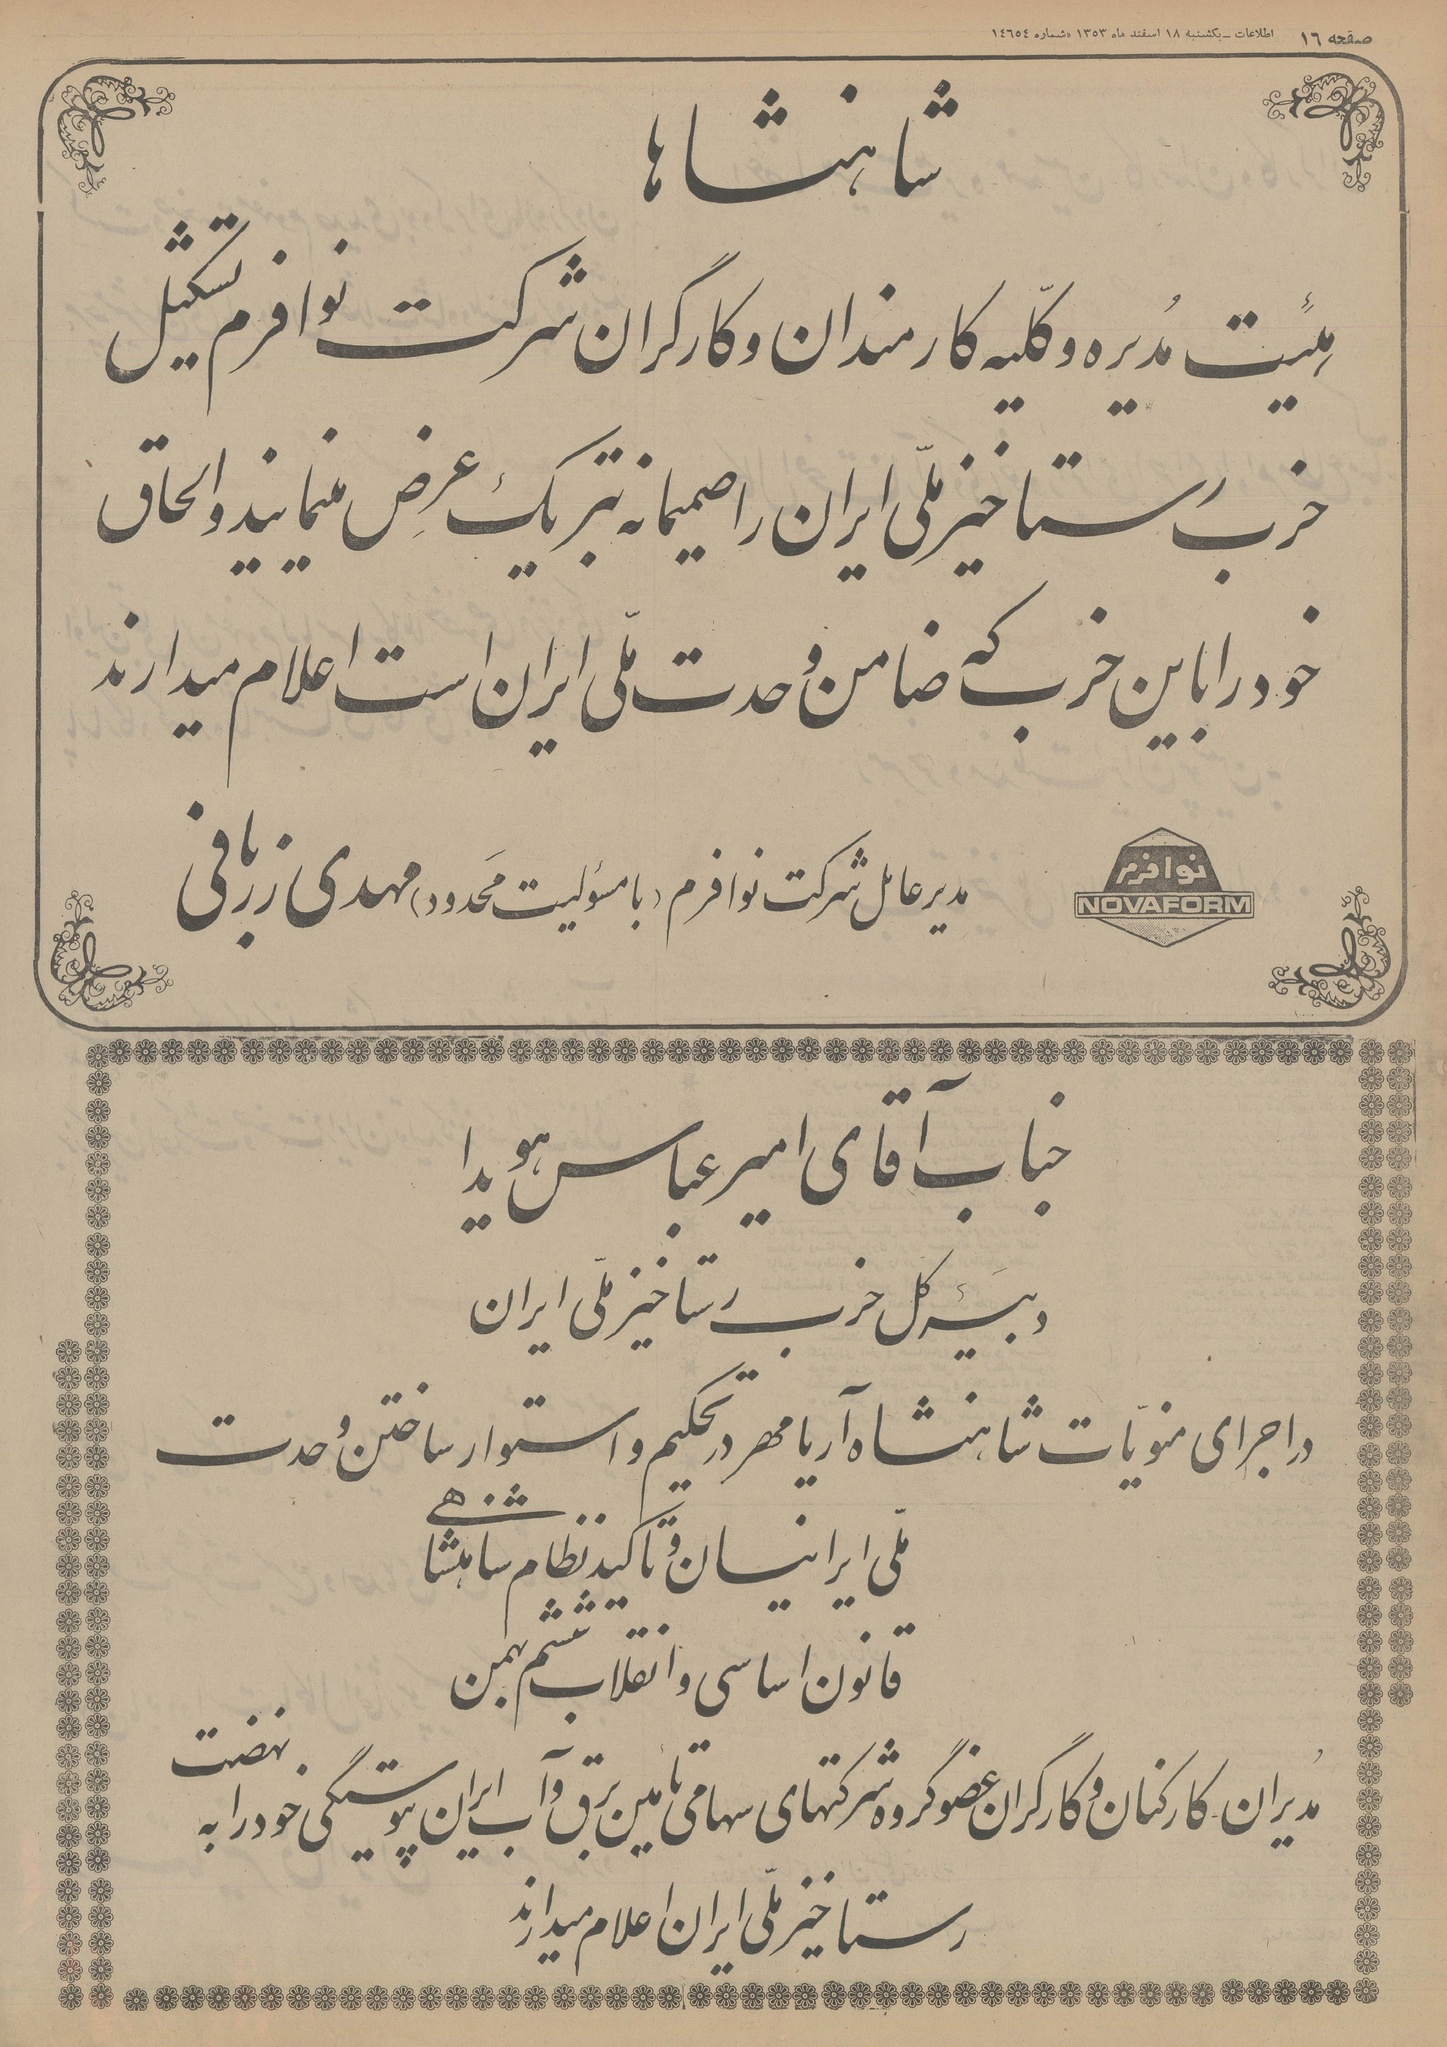 صفحه ١٦ اطلاعات ــ یکشنبه ١٨ اسفند ماه ١٣٥٣ «شماره ١٤٦٥٤
شاهنشاها
هیئت مدیره و کلّیه کارمندان و کارگران شرکت نوافرم تشکیل
حزب رستاخیز ملّی ایران را صمیمانه تبریک عرض مینمایند و الحاق
خود را باین حزب که ضامن وحدت ملّی ایران است اعلام میدارند
نوافرم
NOVAFORM
مدیر عامل شرکت نوافرم (با مسؤلیت محدود) مهدی زربافی
جناب آقای امیر عباس هویدا
دبیر کل حزب رستاخیز ملّی ایران
در اجرای منویّات شاهنشاه آریامهر در تحکیم و استوار ساختن وحدت
ملّی ایرانیان و تاکید نظام شاهنشاهی
قانون اساسی و انقلاب ششم بهمن
مدیران کارکنان و کارگران عضو گروه شرکتهای سهامی تأمین برق و آب ایران پیوستگی خود را به نهضت
رستاخیز ملّی ایران اعلام میدارند